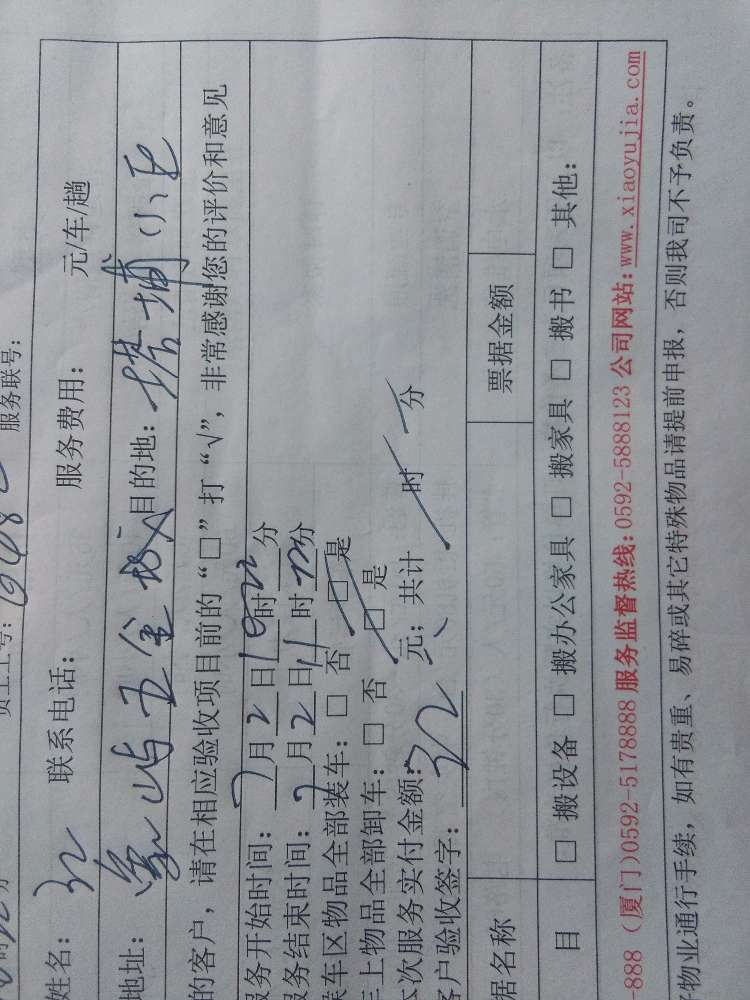 员工工号： 服务联号：
姓名： 联系电话： 服务费用： 元/车/趟
地址：象屿五金城 目的地：塔埔小区
的客户，请在相应验收项目前的“□”打“√”，非常感谢您的评价和意见
服务开始时间：7月2日10时 分
服务结束时间：7月2日11时 分
车区物品全部装车：□ 否 □ 是
车上物品全部卸车：□ 否 □ 是
本次服务实付金额： 元；共计 时 分
客户验收签字：
据名称 票据金额
目 □ 搬设备 □ 搬办公家具 □ 搬家具 □ 搬书 □ 其他：
-888 (厦门)0592-5178888 服务监督热线:0592-5888123 公司网站:www.xiaoyujia.com
物业通行手续，如有贵重、易碎或其它特殊物品请提前申报，否则我司不予负责。